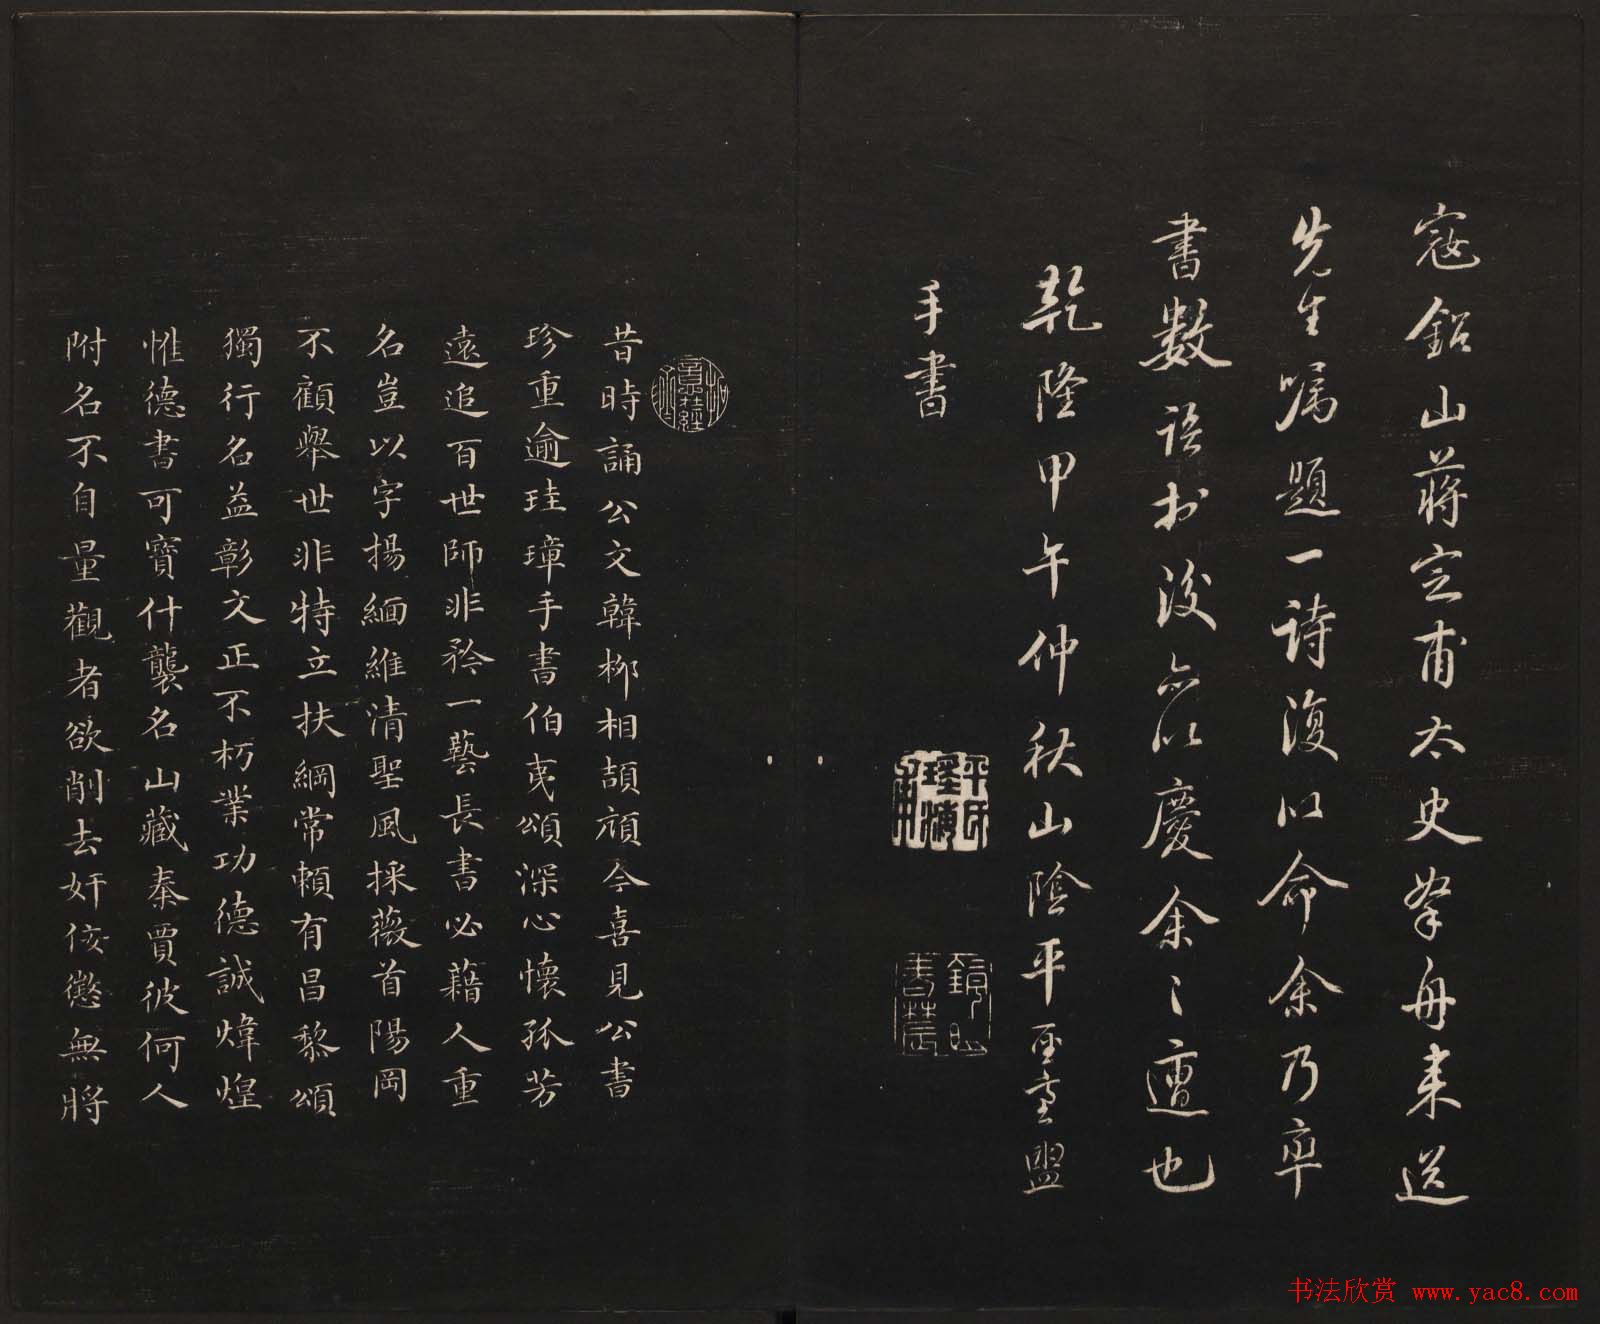 寇鉛山蔣定甫太史拏舟来送
先生嘱題一詩復以命余乃卒
書數語於後亦以慶余之遭也
乾隆甲午仲秋山陰平聖臺盥
手書
昔時誦公文韓柳相頡頏今喜見公書
珍重逾珪璋手書伯夷頌深心懷孤芳
遠追百世師非矜一藝長書必藉人重
名豈以字揚緬維清聖風採薇首陽岡
不顧舉世非特立扶綱常賴有昌黎頌
獨行名益彰文正不朽業功德誠煒煌
惟德書可寶什襲名山藏秦賈彼何人
附名不自量觀者欲削去奸佞懲無將
书法欣赏 www.yac8.com